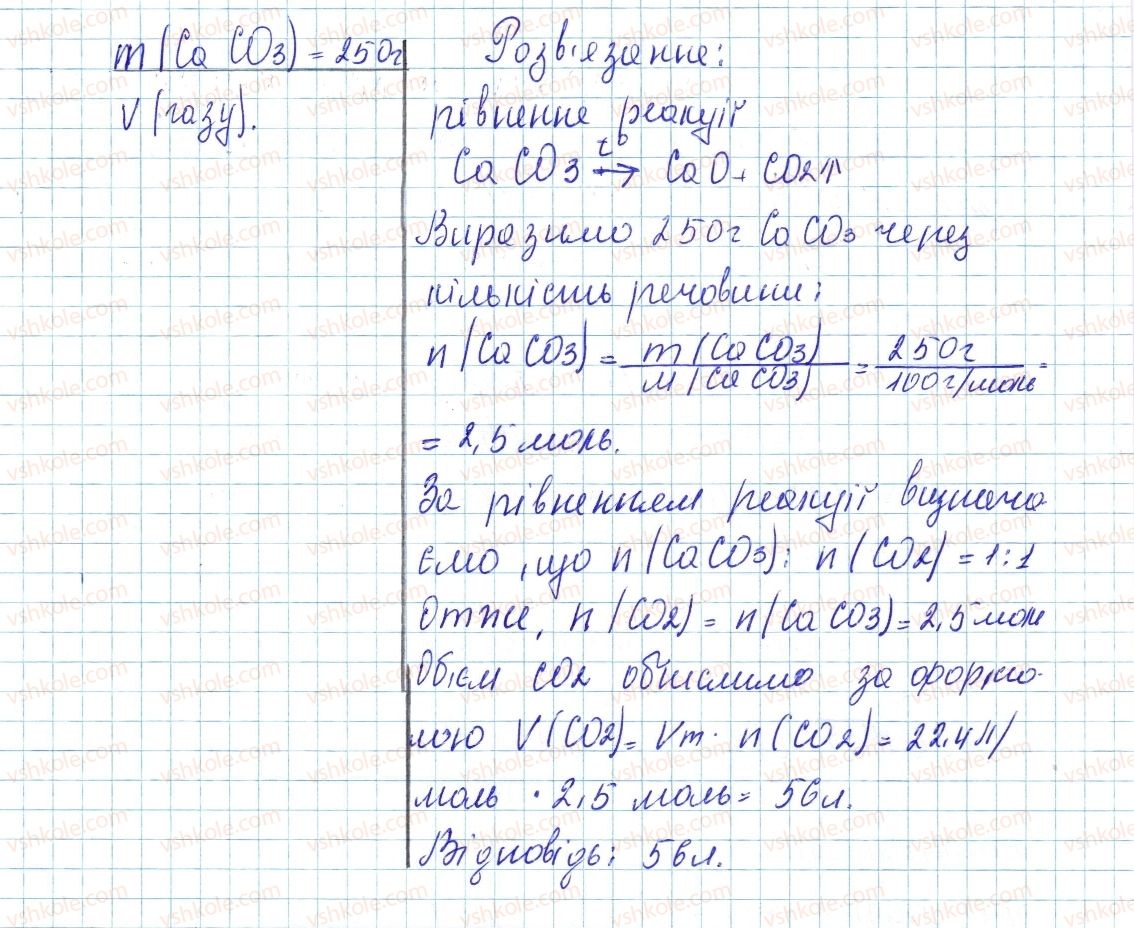 m(CaCO3) = 250г
V(газу).
Розв'язання:
рівненне реакції
t°
CaCO3 → CaO + CO2↑
Виразимо 250г CaCO3 через
кількість речовини:
n(CaCO3) = m(CaCO3) / M(CaCO3) = 250г / 100г/моль =
= 2,5 моль.
За рівненням реакції визнача
ємо, що n(CaCO3): n(CO2) = 1:1
Отже, n(CO2) = n(CaCO3) = 2,5 моль
Об'єм CO2 обчислимо за форму-
лою V(CO2) = Vm · n(CO2) = 22.4 л/
моль · 2,5 моль = 56л.
Відповідь: 56л.
vshkole.com